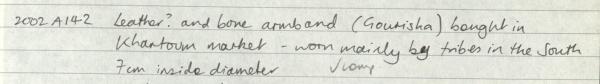 2002 A142 Leather? and bone armband (Gourisha) bought in
Khartoum market - worn mainly by tribes in the South
7cm inside diameter